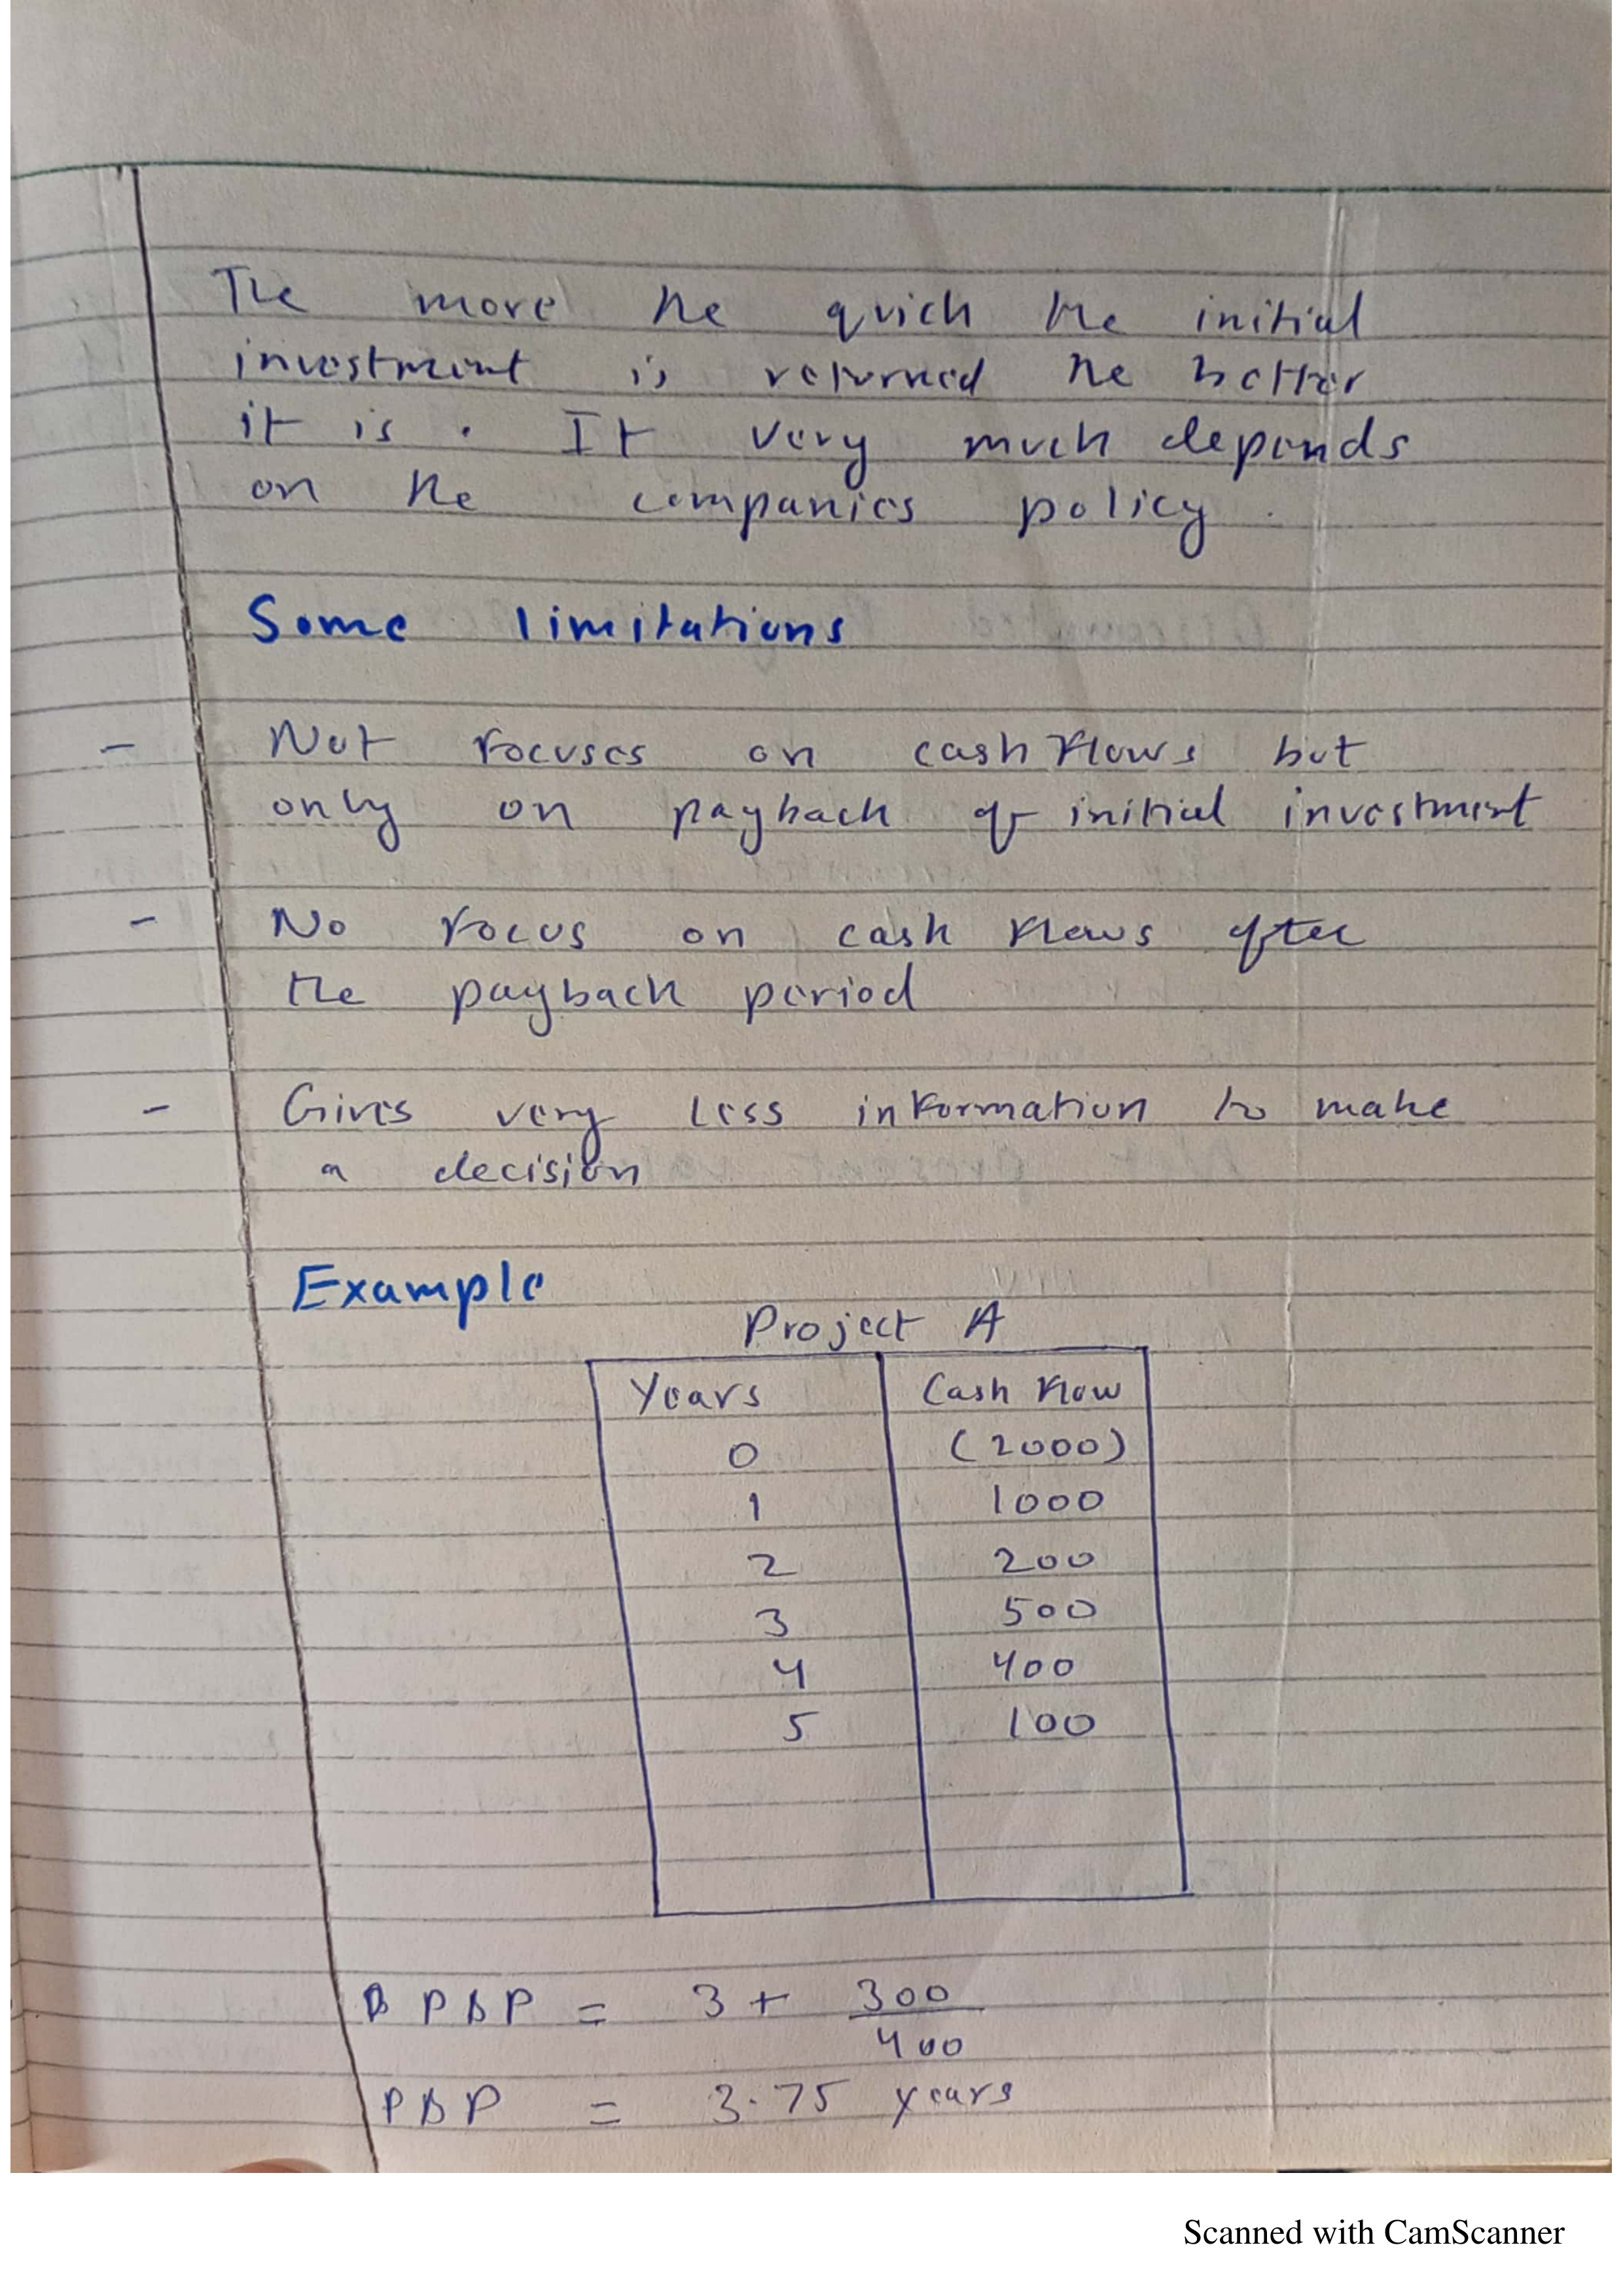 The more the quick the initial
investment is returned the better
it is . It very much depends
on the companies policy .
Some limitations
- Not focuses on cash flows but
only on payback of initial investment
- No focus on cash flows after
the payback period
- Gives very less information to make
a decision
Example
Project A
Years Cash flow
0 (2000)
1 1000
2 200
3 500
4 400
5 100
B PBP = 3 + 300/400
PBP = 3.75 years
Scanned with CamScanner